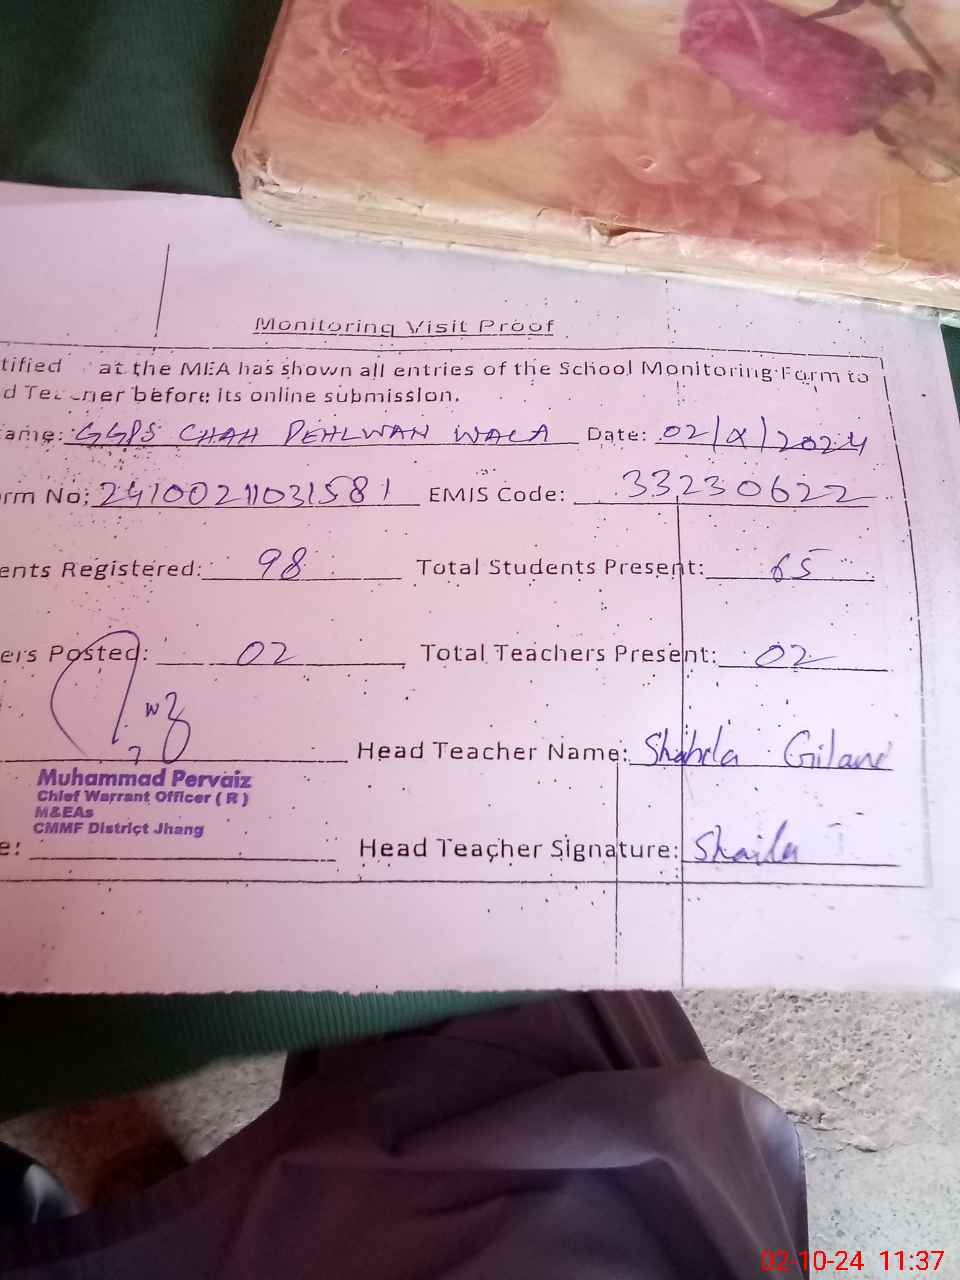 Monitoring Visit Proof
tified at the MEA has shown all entries of the School Monitoring Form to
d Teacher before its online submission.
ame: GGPS CHAH PEHLWAN WALA Date: 02/X/2024
rm No: 2410021031581 EMIS Code: 33230622
ents Registered: 98 Total Students Present: 65
ers Posted: 02 Total Teachers Present: 02
Head Teacher Name: Shahla Gilani
Muhammad Pervaiz
Chief Warrant Officer ( R )
M&EAs
CMMF District Jhang
e: Head Teacher Signature: Shaila
02-10-24 11:37